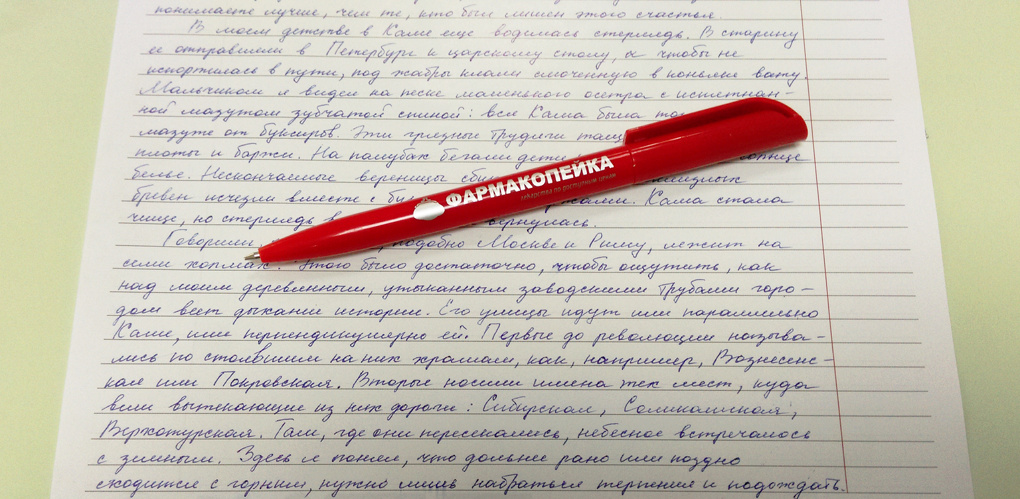 понимаете лучше, чем те, кто был лишен этого счастья.
В моем детстве в Каме еще водилась стерлядь. В старину
ее отправляли в Петербург к царскому столу, а чтобы не
испортилась в пути, под жабры клали смоченную в коньяке вату.
Мальчиком я видел на песке маленького осетра с испятнан-
ной мазутом зубчатой спиной: вся Кама была то
мазуте от буксиров. Эти грязные трудяги тащ
плоты и баржи. На палубах бегали дети солнце
белье. Нескончаемые вереницы
бревен исчезли вместе с Кама стала
чище, но стерлядь в вернулась.
ФАРМАКОПЕЙКА
лекарства по доступным ценам
Говорили, подобно Москве и Риму, лежит на
семи холмах. Этого было достаточно, чтобы ощутить, как
над моим деревянным, утыканным заводскими трубами горо-
дом веет дыхание истории. Его улицы идут или параллельно
Каме, или перпендикулярно ей. Первые до революции называ-
лись по стоявшим на них храмам, как, например, Вознесенс-
кая или Покровская. Вторые носили имена тех мест, куда
вели вытекающие из них дороги: Сибирская, Соликамская,
Верхотурская. Там, где они пересекались, небесное встречалось
с земным. Здесь я понял, что дольнее рано или поздно
сходится с горним, нужно лишь набраться терпения и подождать.